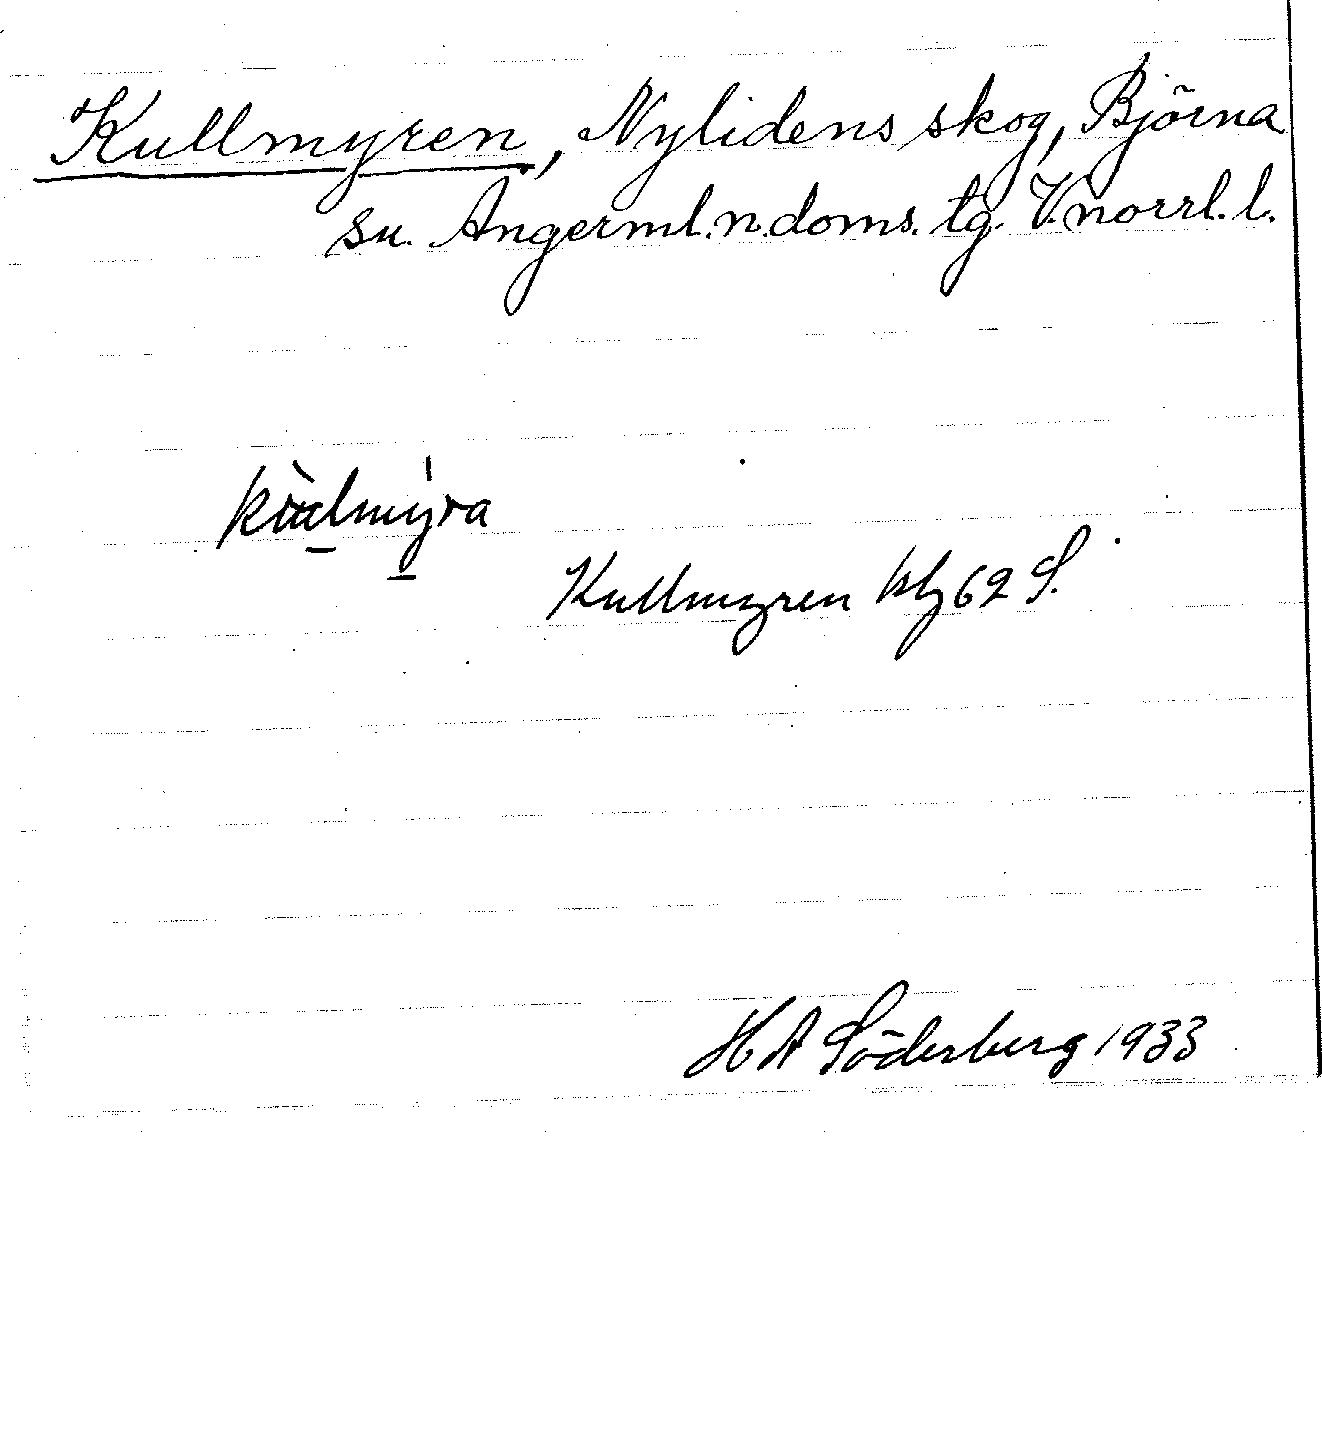 Kullmyren, Nylidens skog, Björna
sn. Ångerml.n.doms. tg. V.norrl. l.
Kullmyren blz 62 S.
H A Söderberg 1933